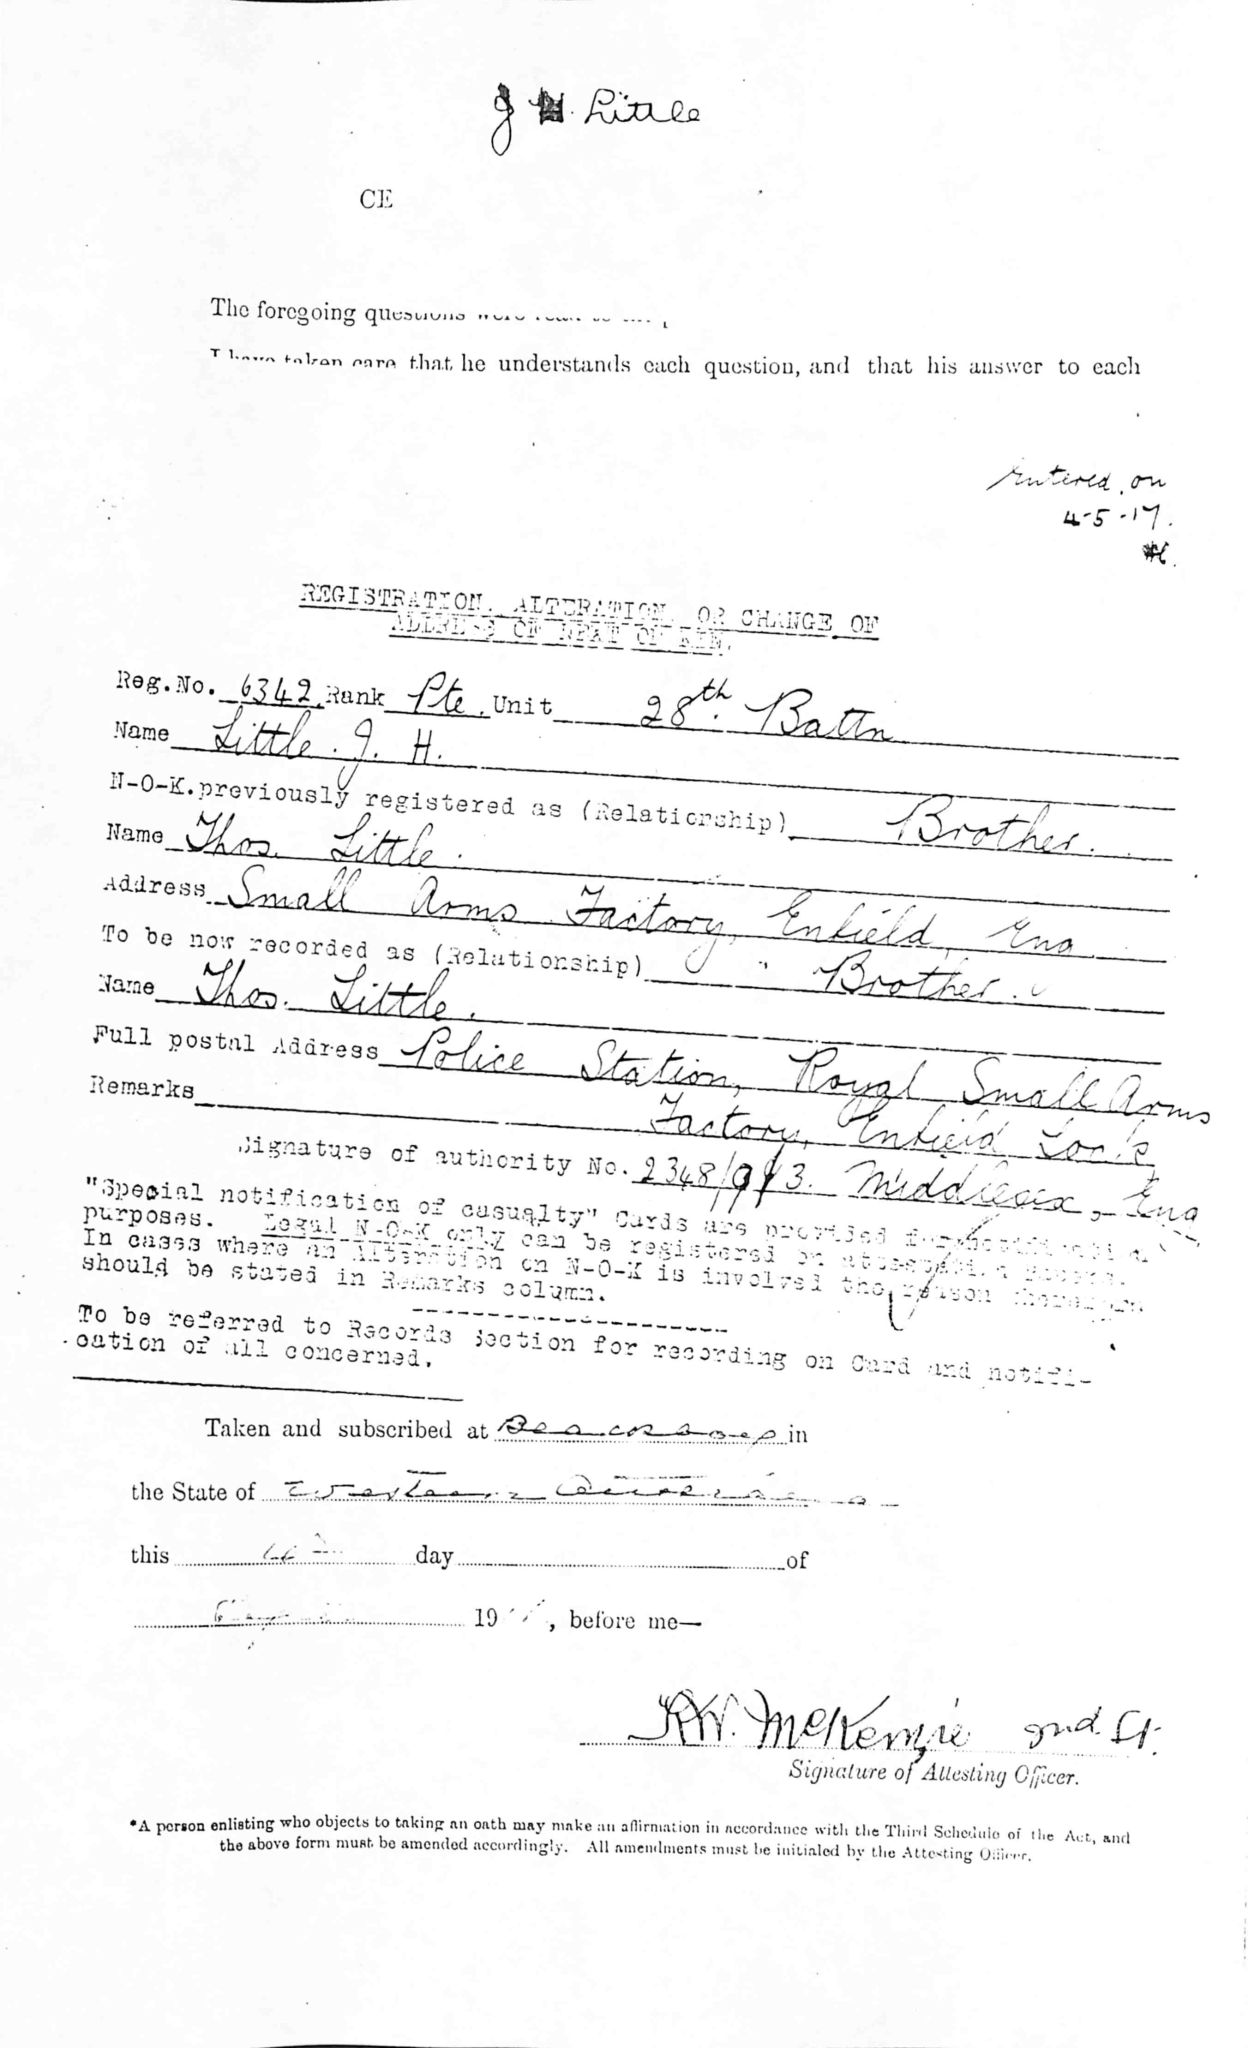 J H. Little
CE
The foregoing questions were read to
I have taken care that he understands each question, and that his answer to each
Entered on
4-5-17.
REGISTRATION, ALTERATION, OR CHANGE OF
ADDRESS OF NEXT OF KIN.
Reg. No. 6342. Rank Pte. Unit 28th. Battn
Name Little. J. H.
N-O-K. previously registered as (Relationship) Brother.
Name Thos. Little.
Address Small Arms Factory, Enfield, Eng
To be now recorded as (Relationship) Brother.
Name Thos. Little.
Full postal Address Police Station, Royal Small Arms
Remarks Factory, Enfield Lock
Signature of authority No. 2348/9/13. Middlesex, Eng
"Special notification of casualty" Cards are provided for notification
purposes. Legal N-O-K only can be registered on attestation
In cases where an Alteration on N-O-K is involved the reason
should be stated in Remarks column.
To be referred to Records Section for recording on Card and notifi-
cation of all concerned.
Taken and subscribed at in
the State of Western Australia
this day of
19 , before me—
McKenzie 2nd Lt.
Signature of Attesting Officer.
*A person enlisting who objects to taking an oath may make an affirmation in accordance with the Third Schedule of the Act, and
the above form must be amended accordingly. All amendments must be initialed by the Attesting Officer.